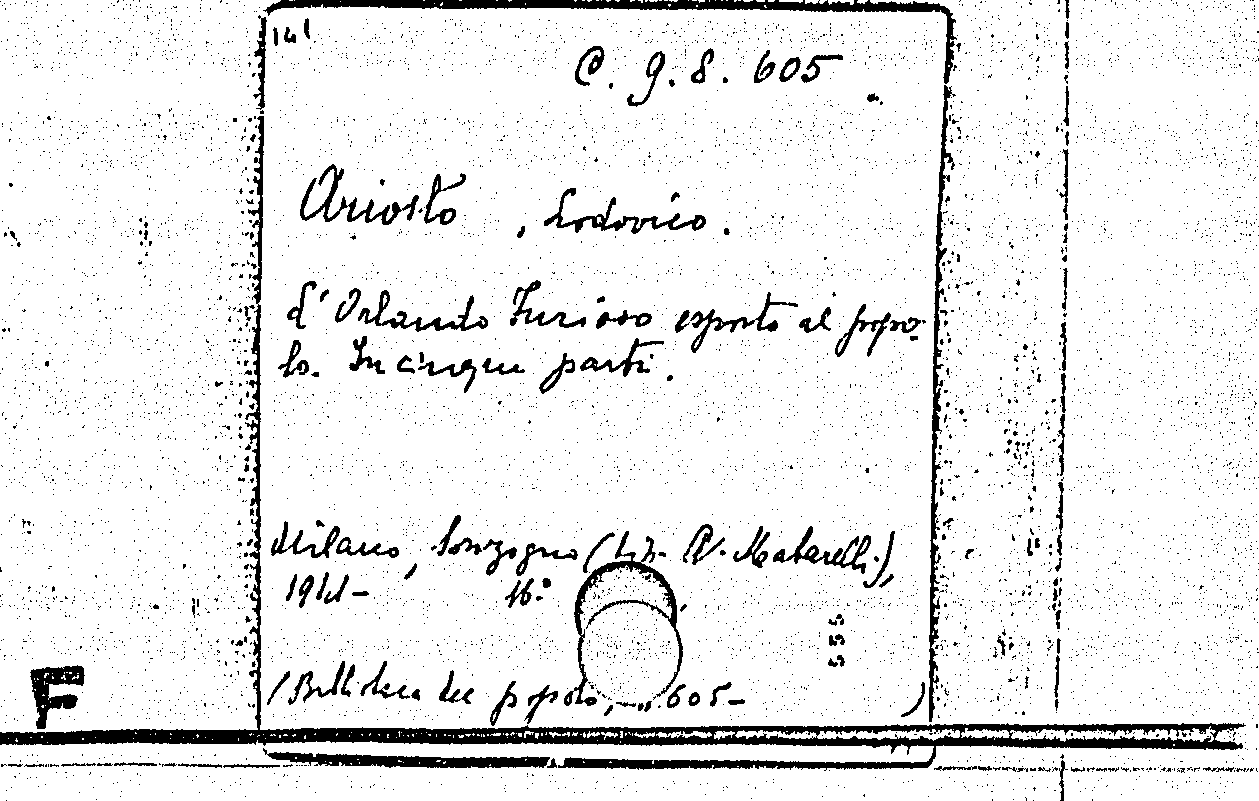 141
C. 9. 8. 605
Ariosto, Lodovico.
L'Orlando Furioso esposto al popo-
lo. In cinque parti.
Milano, Sonzogno (tip. A. Matarelli),
16°
555
(Biblioteca del popolo, n. 605- )
F